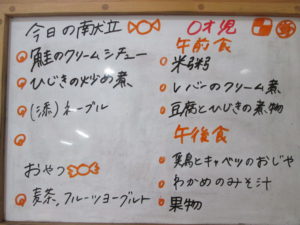 今日の献立
鮭のクリームシチュー
ひじきの炒め煮
(添)ネーブル
おやつ
麦茶、フルーツヨーグルト
0才児
午前食
米粥
レバーのクリーム煮
豆腐とひじきの煮物
午後食
鶏とキャベツのおじや
わかめのみそ汁
果物